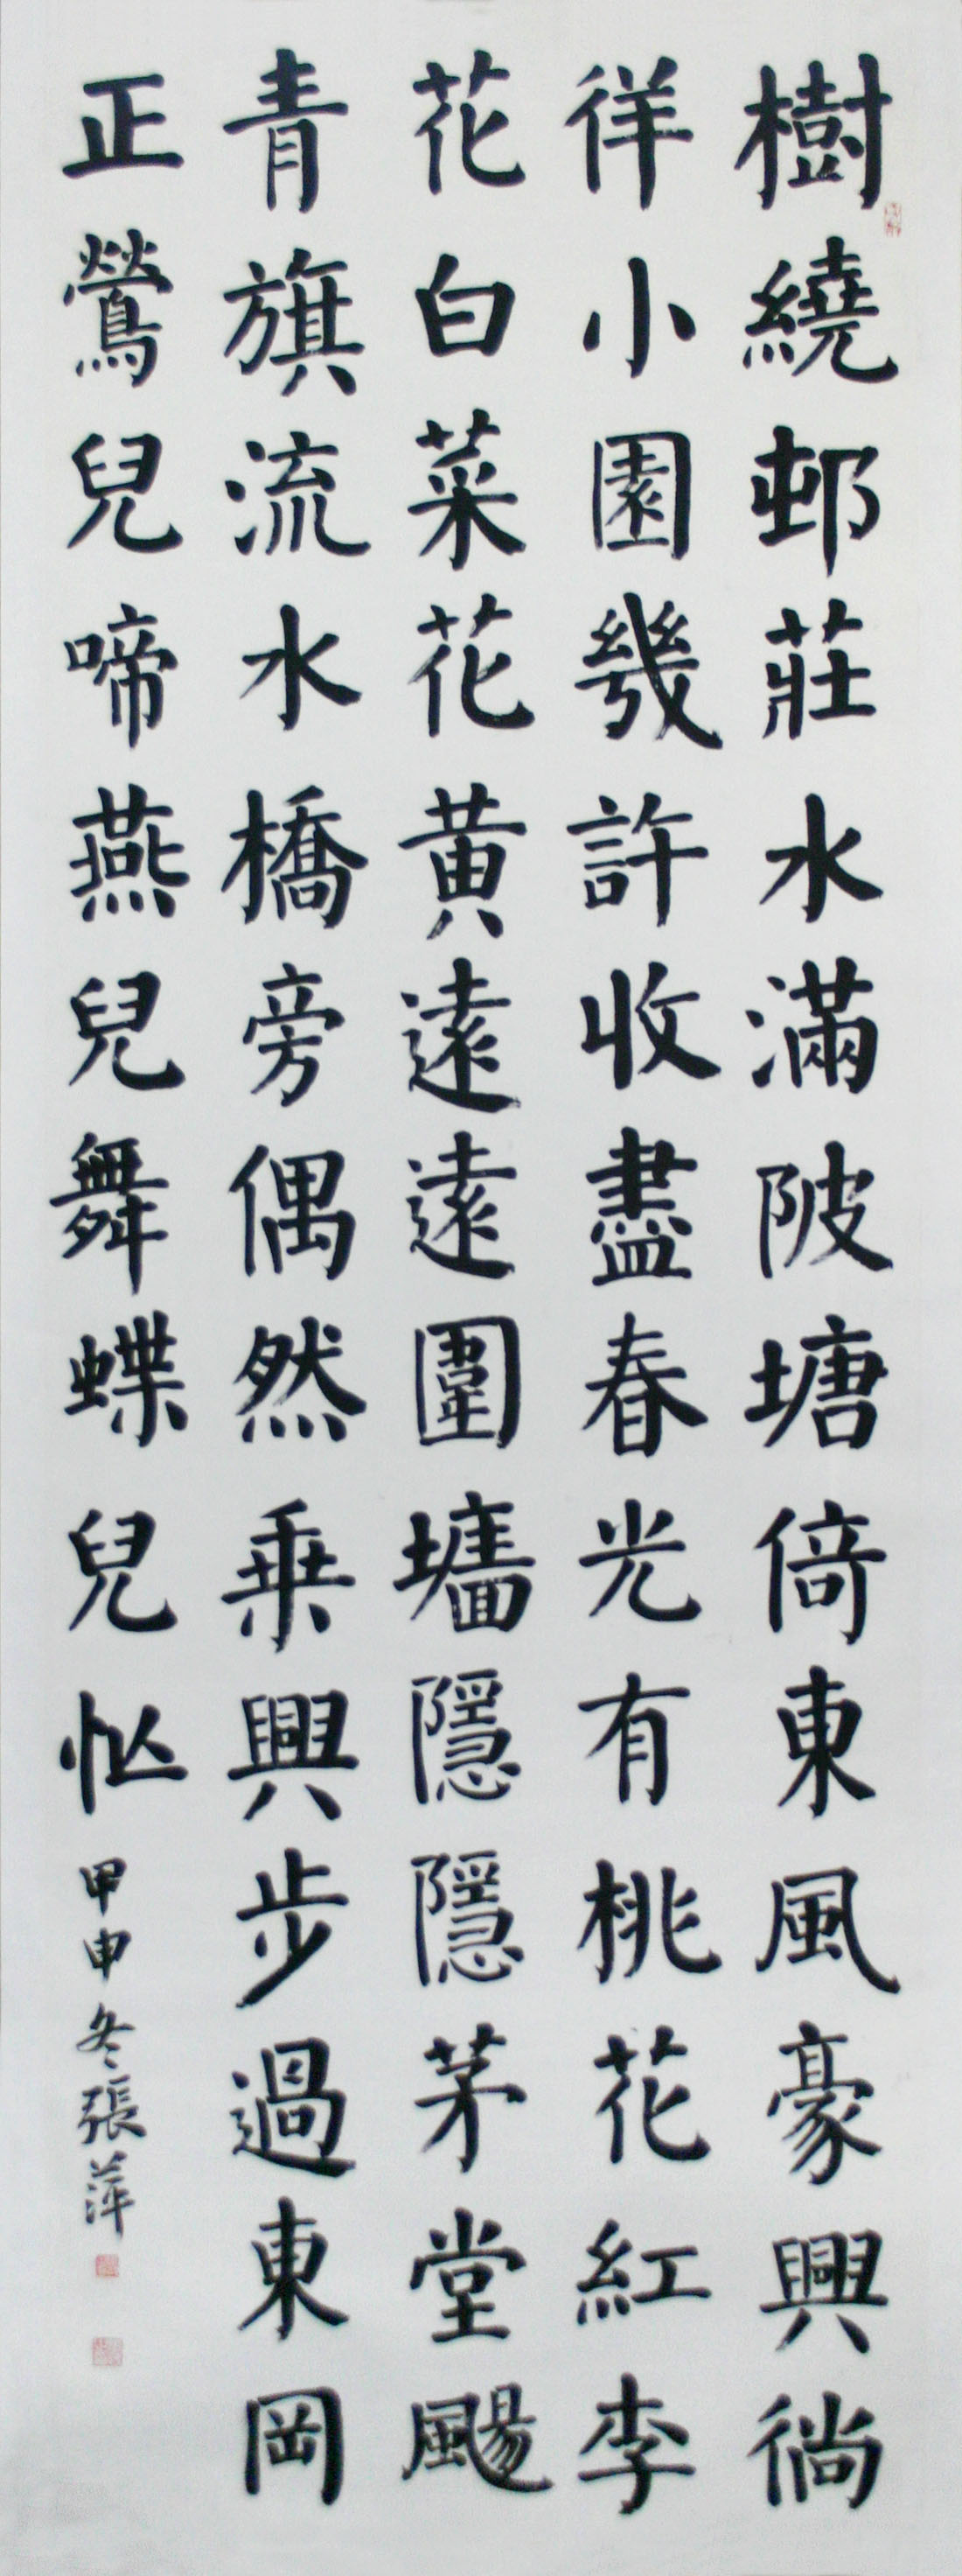 樹繞邨莊水滿陂塘倚東風豪興徜
徉小園幾許收盡春光有桃花紅李
花白菜花黃遠遠圍墻隱隱茅堂颺
青旗流水橋旁偶然乗興步過東岡
正鶯兒啼燕兒舞蝶兒忙
甲申冬張萍